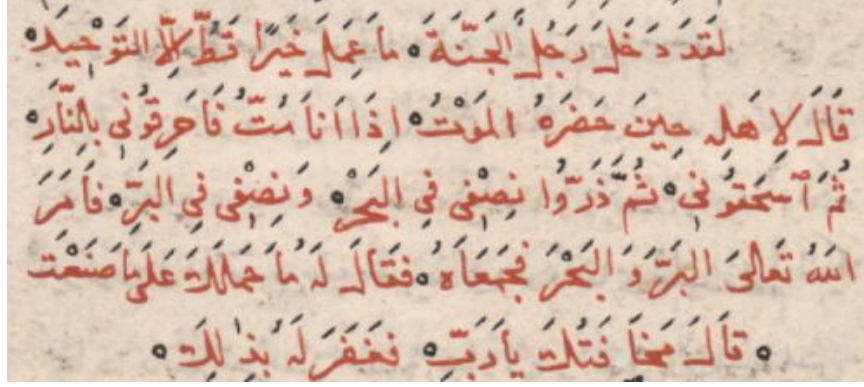 لَقَدْ دَخَلَ رَجُلٌ الْجَنَّةَ ۰ مَا عَمِلَ خَيْرًا قَطُّ إِلَّا التَّوْحِيدَ ۰
قَالَ لِاَهْلِهِ حِينَ حَضَرَهُ الْمَوْتُ ۰ اِذَا اَنَا مُتُّ فَاَحْرِقُونِي بِالنَّارِ ۰
ثُمَّ ٱسْحَقُونِي ۰ ثُمَّ ذَرُّوا نِصْفِي فِي الْبَحْرِ ۰ وَنِصْفِي فِي الْبَرِّ ۰ فَاَمَرَ
اللهُ تَعَالَى الْبَرَّ وَ الْبَحْرَ فَجَمَعَاهُ ۰ فَقَالَ لَهُ مَا حَمَلَكَ عَلَى مَا صَنَعْتَ
۰ قَالَ مَخَافَتُكَ يَا رَبِّ ۰ فَغَفَرَ لَهُ بِذَلِكَ ۰